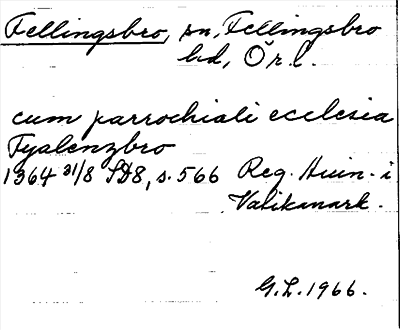 Fellingsbro, sn, Fellingsbro
hd, Ör.l.
cum parrochiali ecclesia
Fyalenzbro
1364 31/8 SD8, s. 566 Reg. Huin. i
Vatikanark.
G.L. 1966.